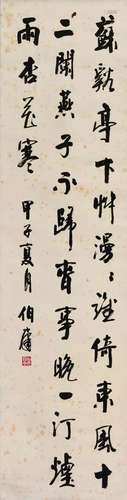 蘇谿亭下艸漫漫誰倚東風十
二闌燕子不歸春事晚一汀煙
雨杏花寒
甲子夏月伯